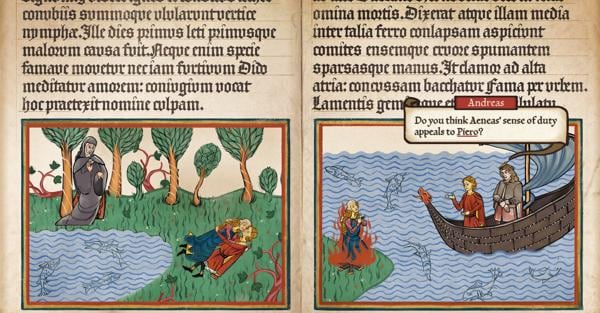 connbiis svmmoqve vlvlarvnt vertice
nymphae. Ille dies primvs leti primvsqve
malorvm cavsa fvit. Neqve enim specie
famave movetvr nec iam fvrtivvm Dido
meditatvr amorem: conivgivm vocat
hoc praetexit nomine cvlpam.
omina mortis. Dixerat atqve illam media
inter talia ferro conlapsam aspicivnt
comites ensemqve crvore spvmantem
sparsasqve manvs. It clamor ad alta
atria: concvssam bacchatvr Fama per vrbem.
Lamentis
Andreas
Do you think Aeneas' sense of duty
appeals to Piero?